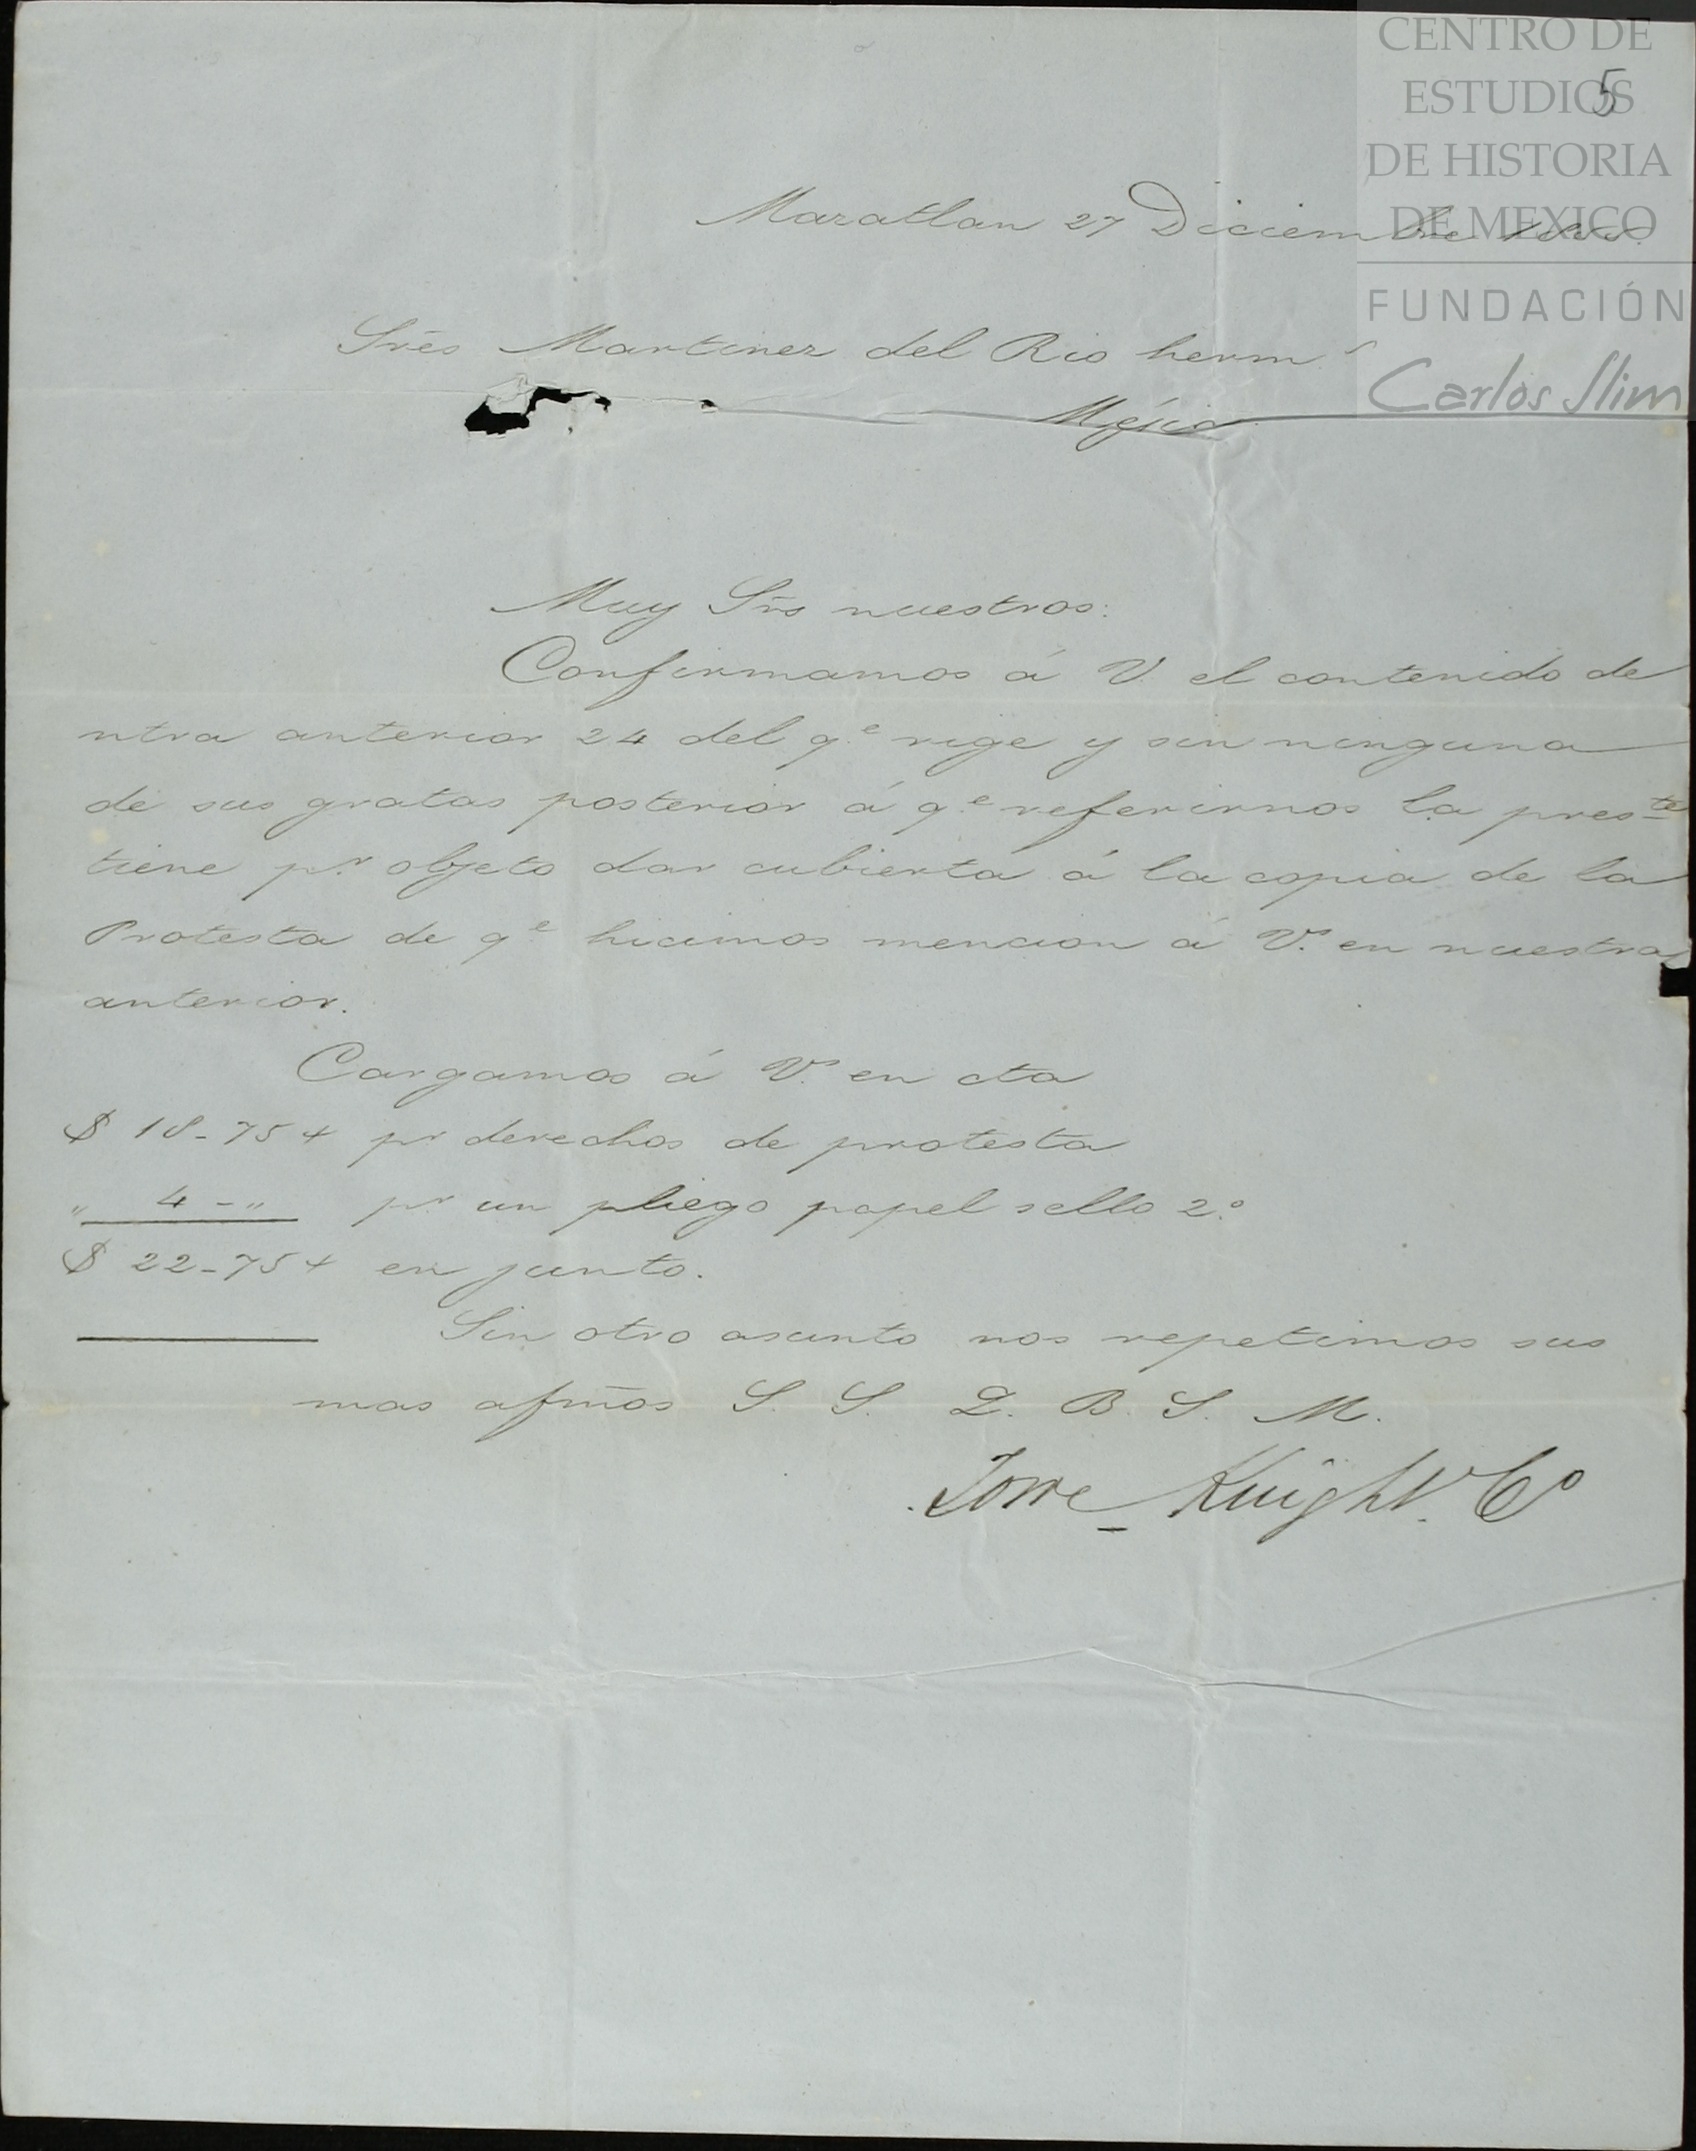 CENTRO DE
ESTUDIOS
5
DE HISTORIA
DE MEXICO
FUNDACIÓN
Carlos Slim
Mazatlan 27 Diciembre
Srẽs Martinez del Rio herm.s
Méjico
Muy Srs nuestros:
Confirmamos á V. el contenido de
ntra anterior 24 del q.e rige y sin ninguna
de sus gratas posterior á q.e referirnos la pres.te
tiene p.r objeto dar cubierta á la copia de la
Protesta de q.e hicimos mencion á V.s en nuestra
anterior.
Cargamos á V.s en cta
$ 18-75 + pr derechos de protesta
" 4 - " p.r un pliego papel sello 2.o
$ 22-75 + en junto.
Sin otro asunto nos repetimos sus
mas afm̃os S. S. Q. B. S. M.
Torre Knight Co